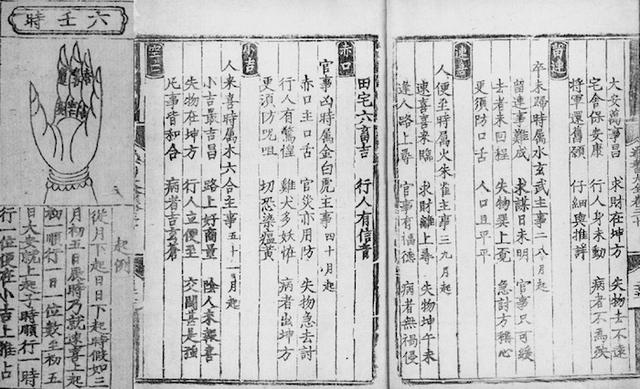 六壬時
大安萬事昌 求財在坤方 失物去不遠
宅舍保安康 行人身未動 病者不為殃
將軍還舊願 仔細與推詳
留連
卒未歸時屬水玄武主事二八月起
留連事難成 求謀日未明 官事只可緩
去者未回程 失物巽上覓 急討方稱心
更須防口舌 人口且平平
速喜
人便至時屬火朱雀主事三九月起
速喜喜來臨 求財離上尋 失物坤午未
逢人路上尋 官事有福德 病者無禍侵
田宅六畜吉 行人有信音
赤口
官事凶時屬金白虎主事四十月起
赤口主口舌 官災亦用防 失物急去討
行人有驚惶 雞犬多妖怪 病者出坤方
更須防咒咀 切恐染瘟黃
小吉
人來喜時屬木六合主事五十一月起
小吉最吉昌 路上好商量 陰人來報喜
失物在坤方 行人立便至 交關甚是強
凡事皆和合 病者告玄蒼
空亡
起例
從月下起日日下起時假如三
月初五日辰時乃就速喜上起
初一順行一日一位數至初五
日大安就上起子時順行一時
行一位便在小吉上推占